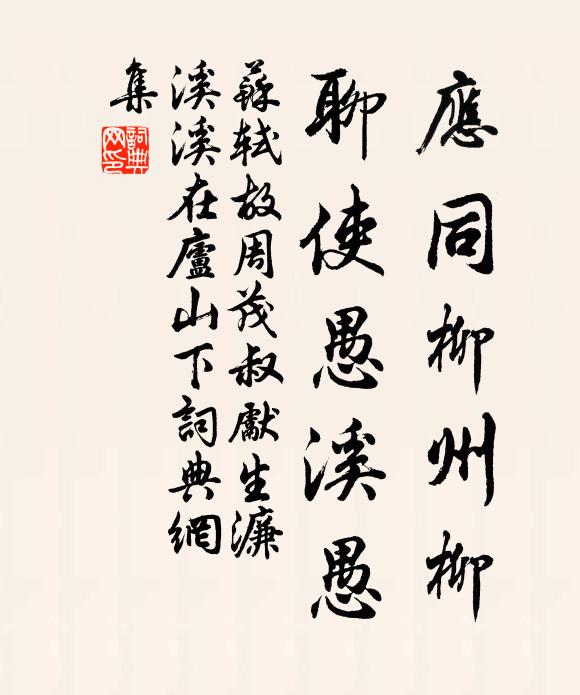 應同柳州柳
聊使愚溪愚
蘇軾故周茂叔獻生濂
溪溪在廬山下詞典網
集
詞典网印